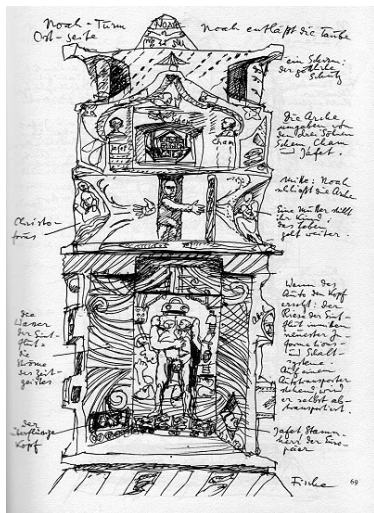 Noah-Turm
Ost-seite
Noah entläßt die Taube
Noah
ein Schirm:
der göttliche
Schutz
Die Arche
umgeben von
den drei Söhnen
Schem, Cham
und Jafet.
Schem
Jafet
Cham
Mitte: Noah
schließt die Arche
Eine Mutter stillt
ihr Kind:
das Leben
geht weiter.
Christo-
forus
Wenn das
Auto den Kopf
ersetzt: der
Riese der Sint-
flut
neuester In-
formations-
und Schalt-
systeme.
Auf einem
Autotransporter
stehend, wird
er selbst ab-
transportiert.
die
Wasser
der Sint-
flut:
die
Ströme
des Zeit-
geistes
der
überflüssige
Kopf
Jafet, Stamm-
herr der Euro-
päer
Fische
69